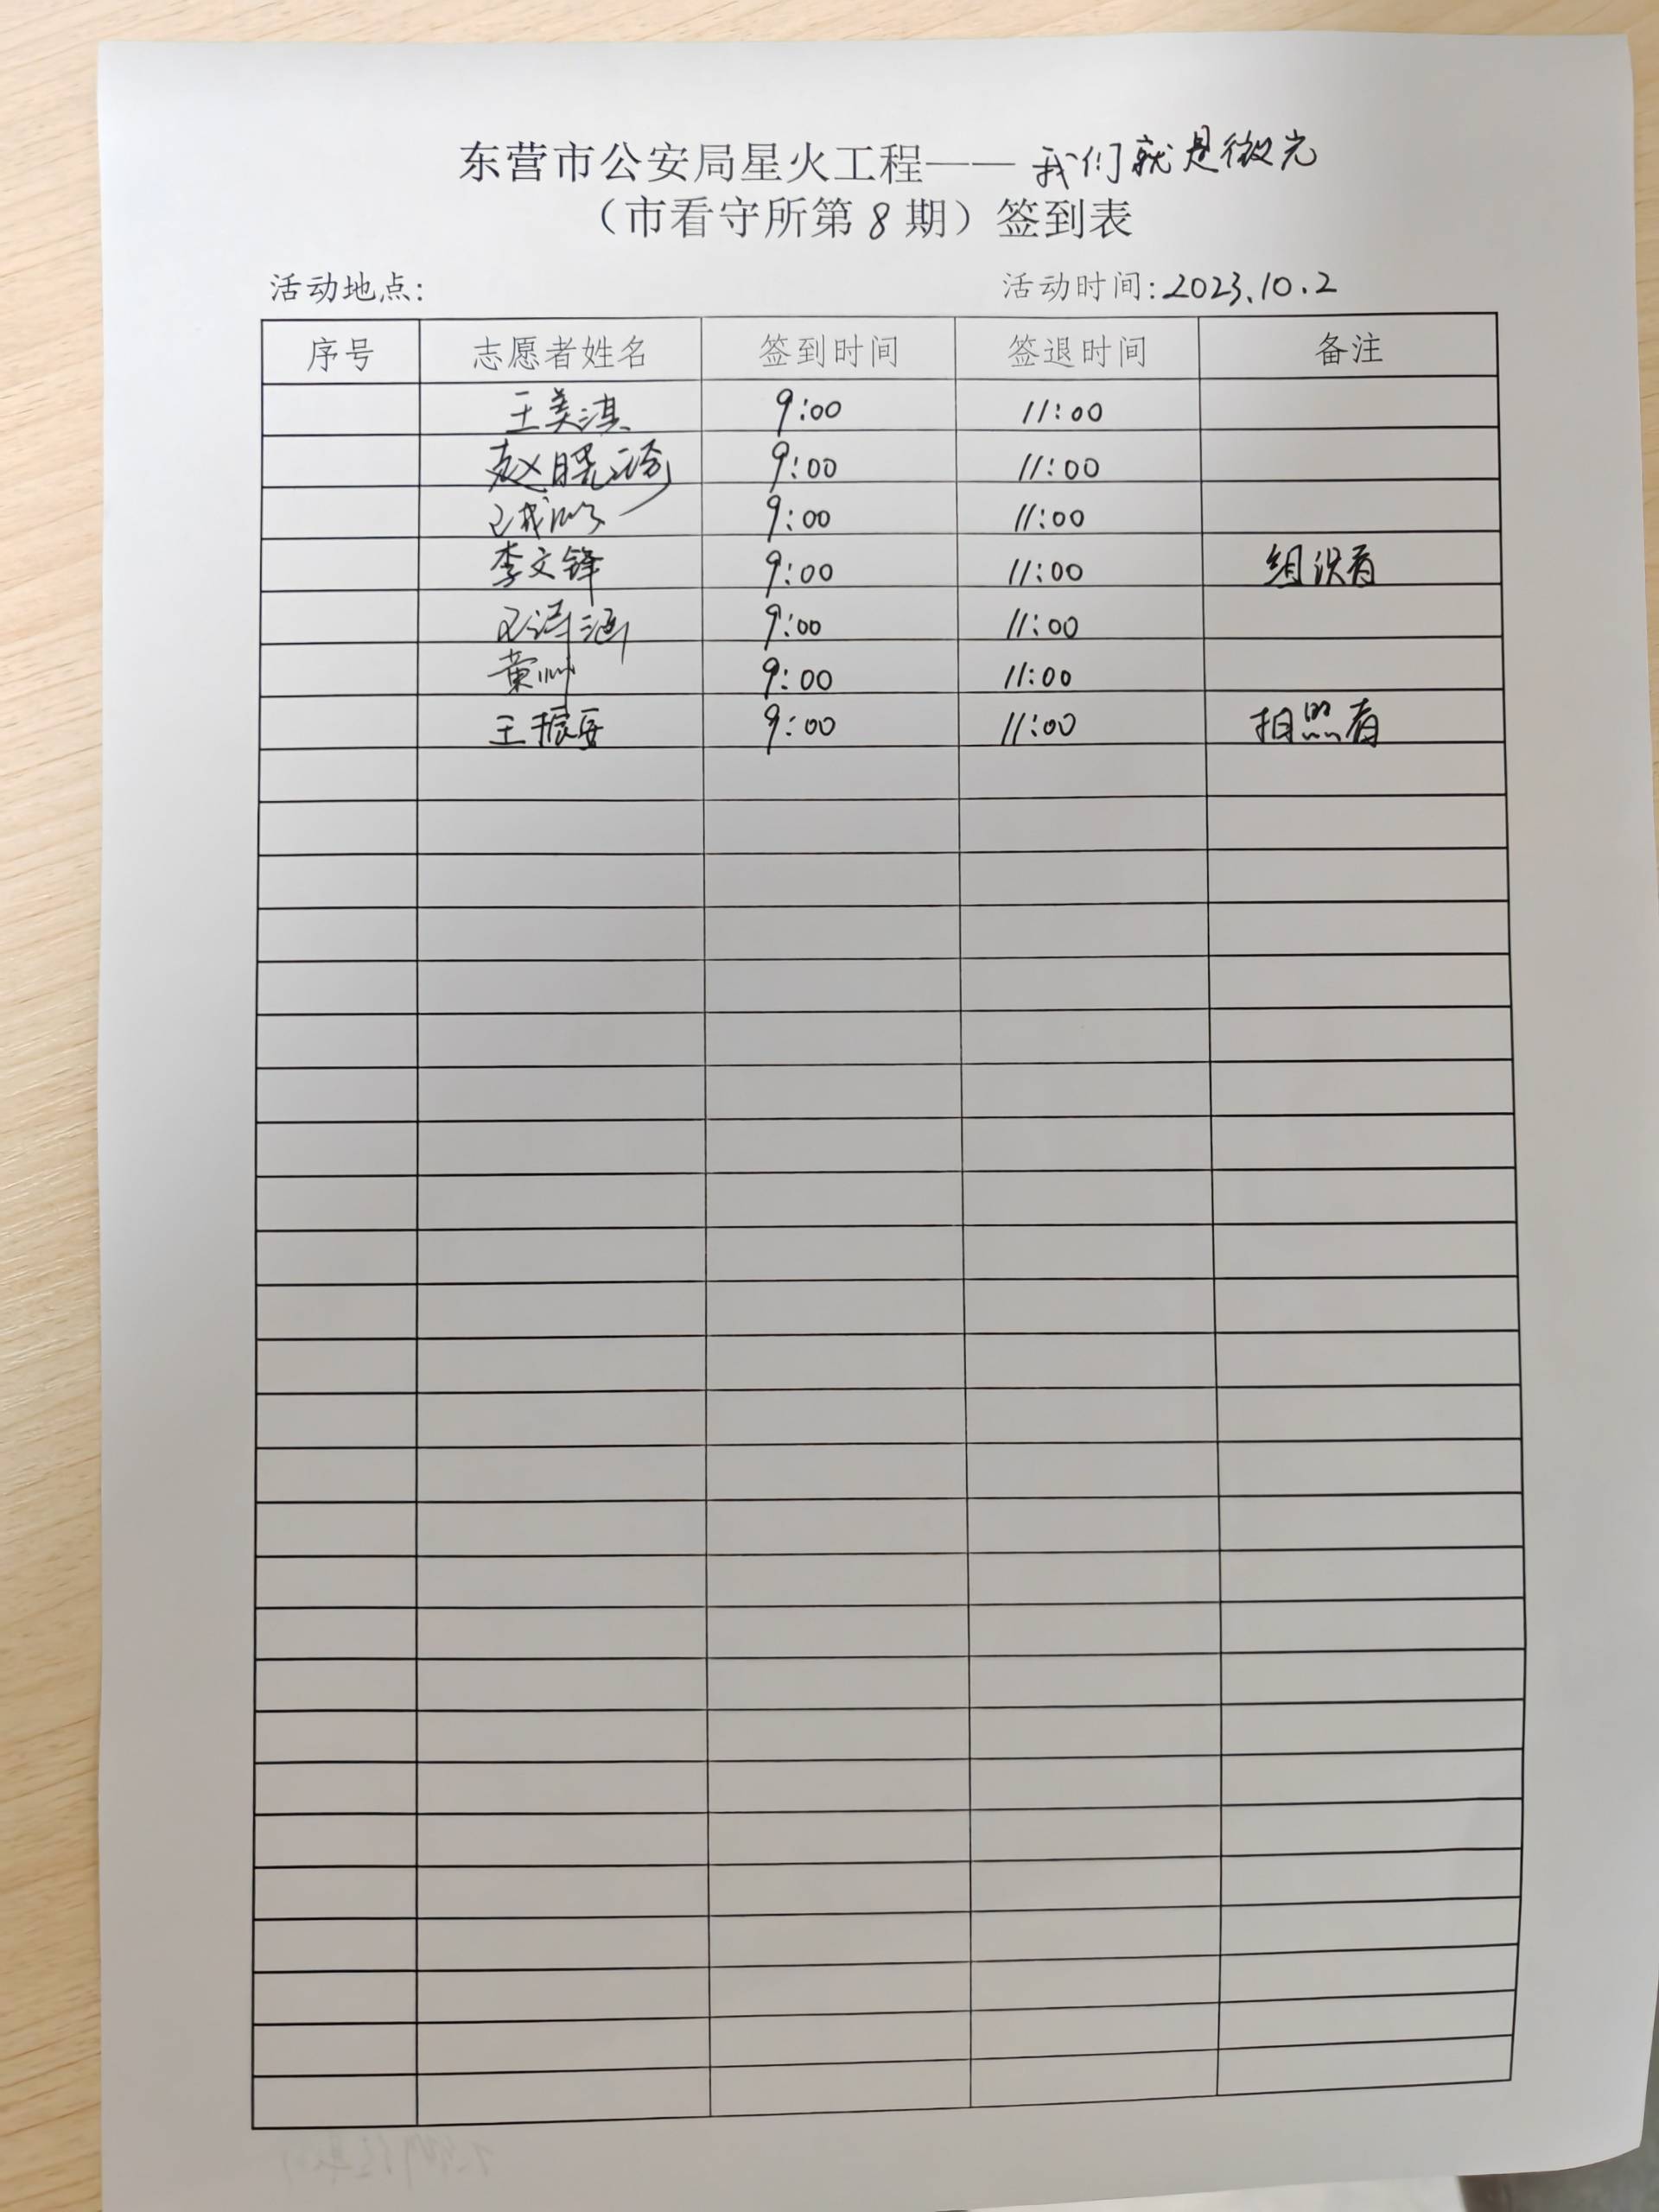 东营市公安局星火工程——我们就是微光
（市看守所第8期）签到表
活动地点: 活动时间:2023.10.2
序号 志愿者姓名 签到时间 签退时间 备注
王美淇 9:00 11:00
赵晓 9:00 11:00
9:00 11:00
李文锋 9:00 11:00 组织者
涵 9:00 11:00
黄 9:00 11:00
王振 9:00 11:00 拍照者